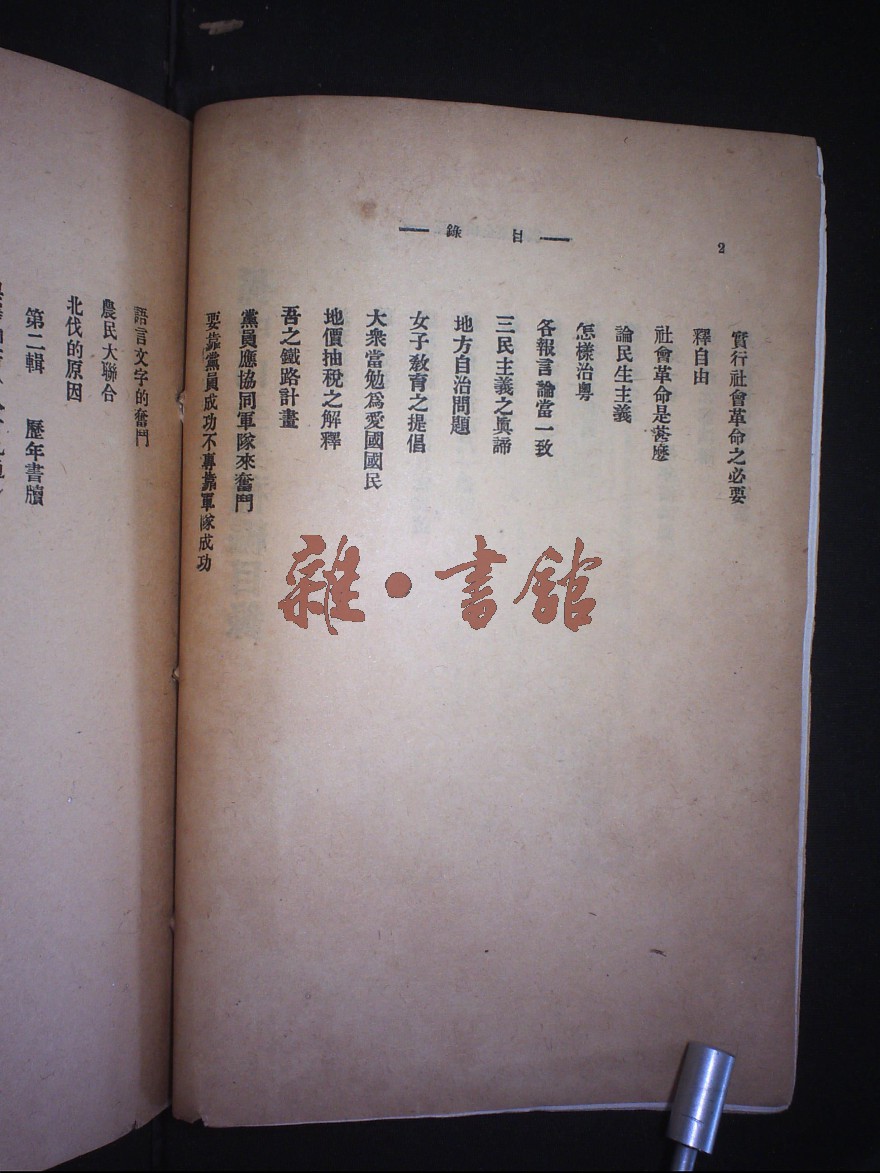 2
目錄
實行社會革命之必要
釋自由
社會革命是甚麽
論民生主義
怎樣治粵
各報言論當一致
三民主義之眞諦
地方自治問題
女子敎育之提倡
大衆當勉爲愛國國民
地價抽稅之解釋
吾之鐵路計畫
黨員應協同軍隊來奮鬥
要靠黨員成功不專靠軍隊成功
語言文字的奮鬥
農民大聯合
北伐的原因
第二輯 歷年書牘
雜·書館